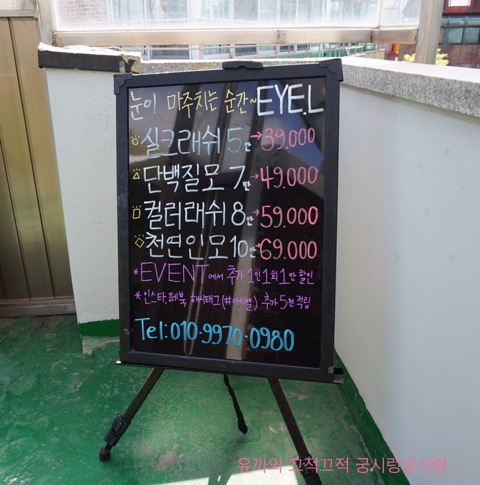 눈이 마주치는 순간~ EYE.L
실크래쉬 5만→39,000
단백질모 7만→49.000
컬러래쉬 8만→59.000
천연인모 10만→69.000
*EVENT에서 추가 1인 1회 1만 할인
*인스타,페북 해시태그(#아이엘) 추가 5천 적립
Tel:010·9970·0980
유까의 끄적끄적 궁시렁궁시렁